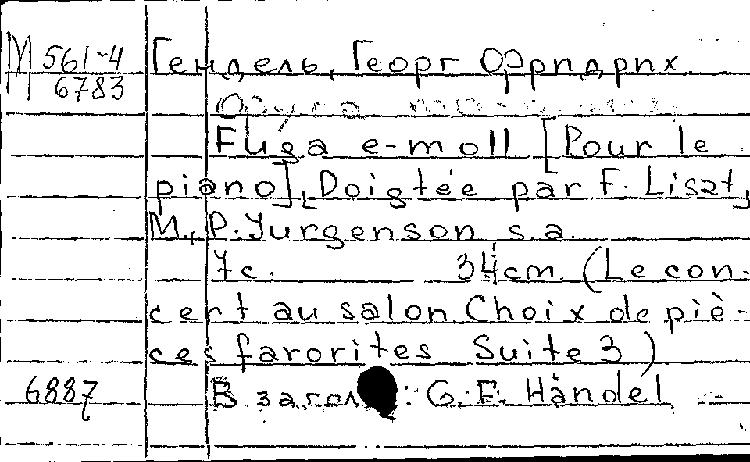 М 561-4 Гендель, Георг Фридрих
М 6783
Фуга
Fuga e-moll [Pour le
piano], [Doigtée par F. Liszt]
M., P. Jurgenson s.a.
7 с. 34 cm. (Le con-
cert au salon Choix de piè-
ces farorites Suite 3)
6887 В загол : G. F. Händel